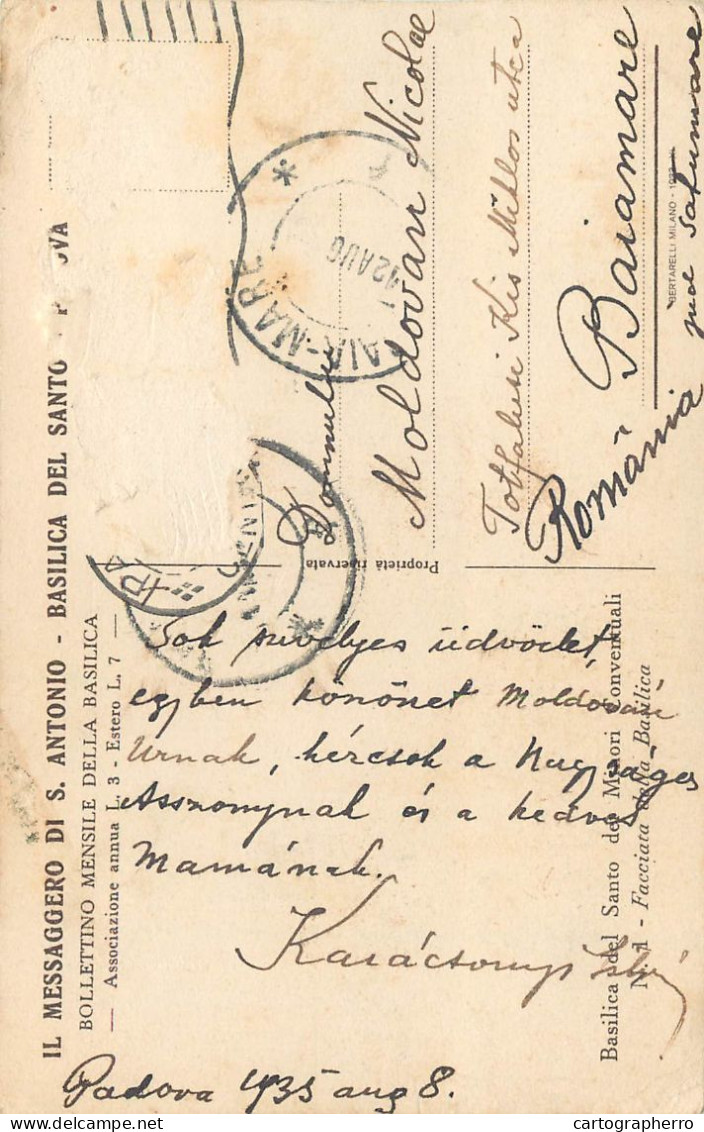 IL MESSAGGERO DI S. ANTONIO - BASILICA DEL SANTO - P OVA
BOLLETTINO MENSILE DELLA BASILICA
— Associazione annua L. 3 - Estero L. 7 —
Basilica del Santo dei Minori Conventuali
N. 1 - Facciata della Basilica
Proprietà riservata
BERTARELLI MILANO
12 AUG
Domnului
Moldovan Nicolae
Totfalusi Kis Miklos utca
Baiamare
jud Satumare
România
Sok szivelyes üdvözlet,
egyben köszönet Moldován
Urnak, kézcsók a Nagyságos
Asszonynak és a kedves
Mamának.
Karácsonyi
Padova 1935 aug 8.
cartographerro